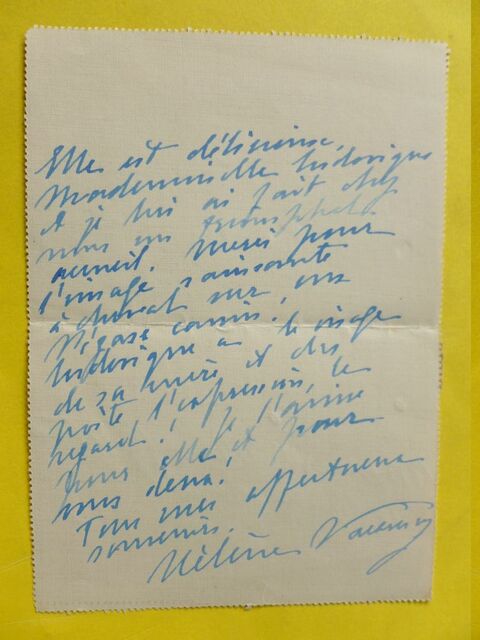 Elle est délicieuse,
Mademoiselle Ludovique
et je lui ai fait chez
nous un triomphal
accueil. Merci pour
l'image ravissante
à cheval sur un
Pégase
Ludovique a le visage
de sa mère et du
poète l'expression, le
regard! je l'aime
pour elle et pour
vous deux!
Tous mes affectueux
souvenirs.
Hélène Vacaresco